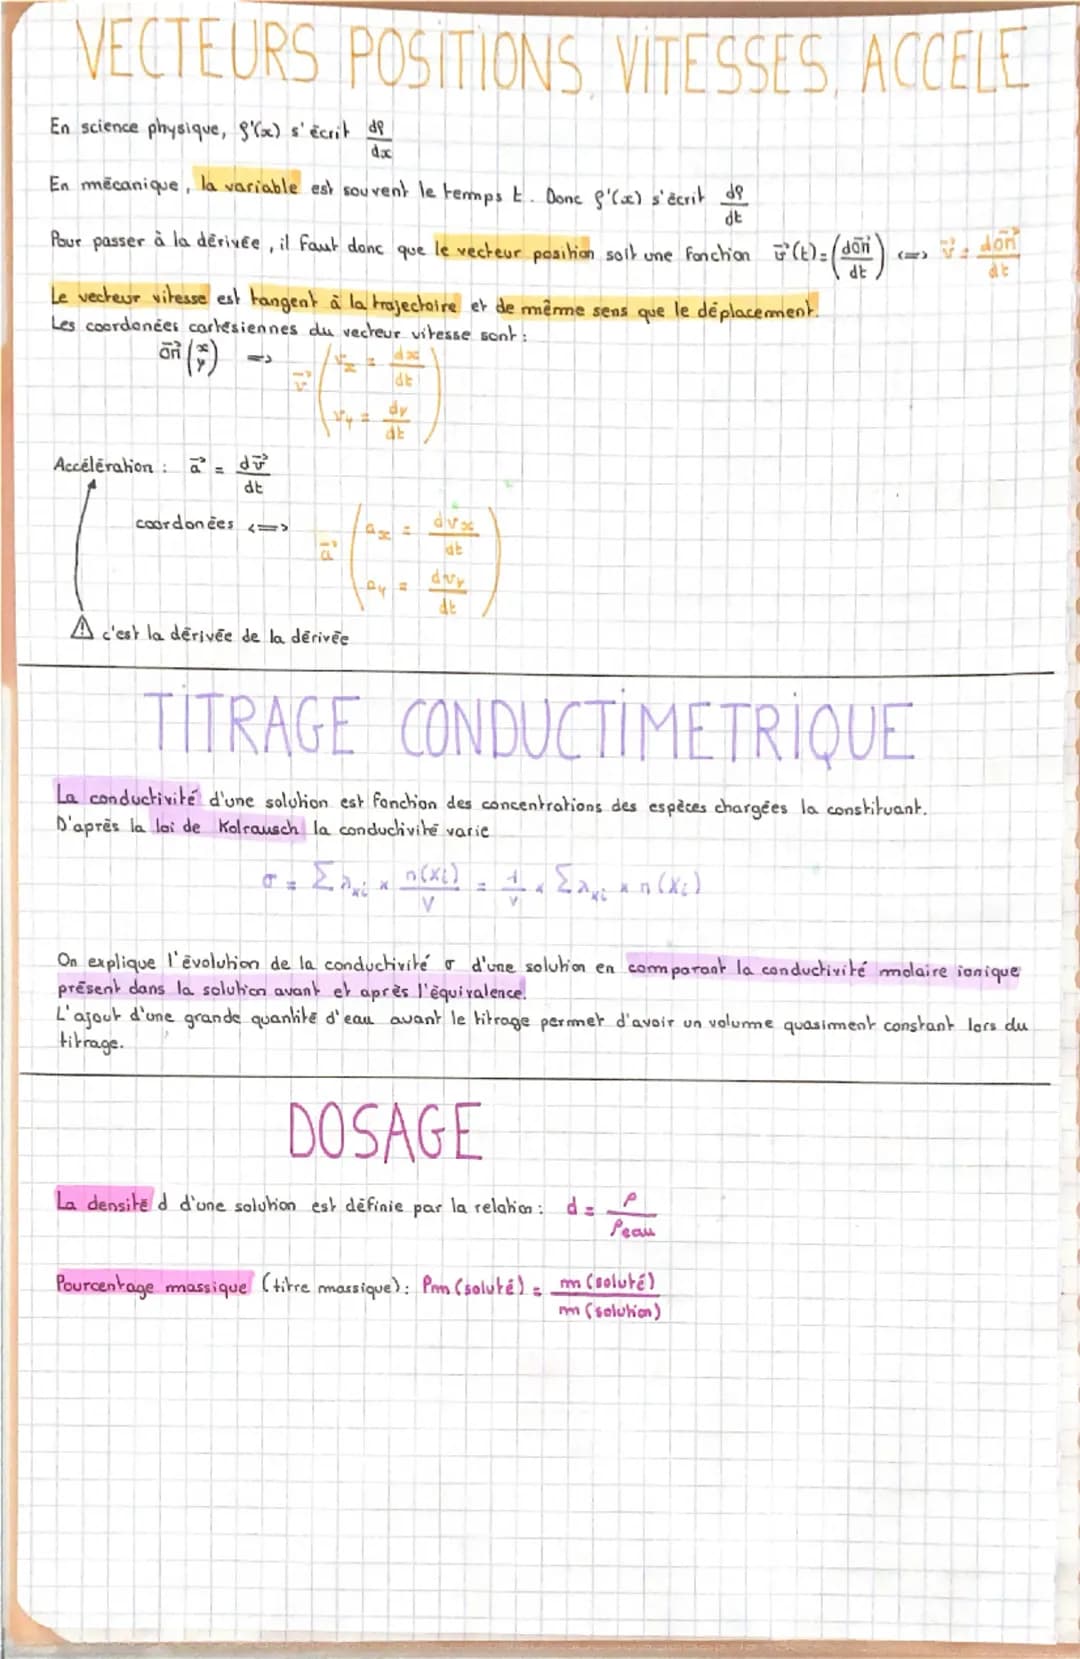 VECTEURS POSITIONS, VITESSES, ACCELE
En science physique, f'(x) s'écrit df/dx
En mécanique, la variable est souvent le temps t. Donc f'(x) s'écrit df/dt
Pour passer à la dérivée, il faut donc que le vecteur position soit une fonction v⃗(t)=(dOM⃗/dt) <=> v⃗ = dOM⃗/dt
Le vecteur vitesse est tangent à la trajectoire et de même sens que le déplacement.
Les coordonées cartésiennes du vecteur vitesse sont :
OM⃗ (x y) => v⃗ (vx = dx/dt
vy = dy/dt)
Accélération : a⃗ = dv⃗/dt
coordonées <=> a⃗ (ax = dvx/dt
ay = dvy/dt)
⚠ c'est la dérivée de la dérivée
TITRAGE CONDUCTIMETRIQUE
La conductivité d'une solution est fonction des concentrations des espèces chargées la constituant.
D'après la loi de Kolrausch la conductivité varie
σ = Σ λxi × n(Xi)/V = 1/V × Σ λxi × n(Xi)
On explique l'évolution de la conductivité σ d'une solution en comparant la conductivité molaire ionique
présent dans la solution avant et après l'équivalence.
L'ajout d'une grande quantité d'eau avant le titrage permet d'avoir un volume quasiment constant lors du
titrage.
DOSAGE
La densité d d'une solution est définie par la relation : d = ρ/ρeau
Pourcentage massique (titre massique) : Pm (soluté) = m (soluté)/m (solution)